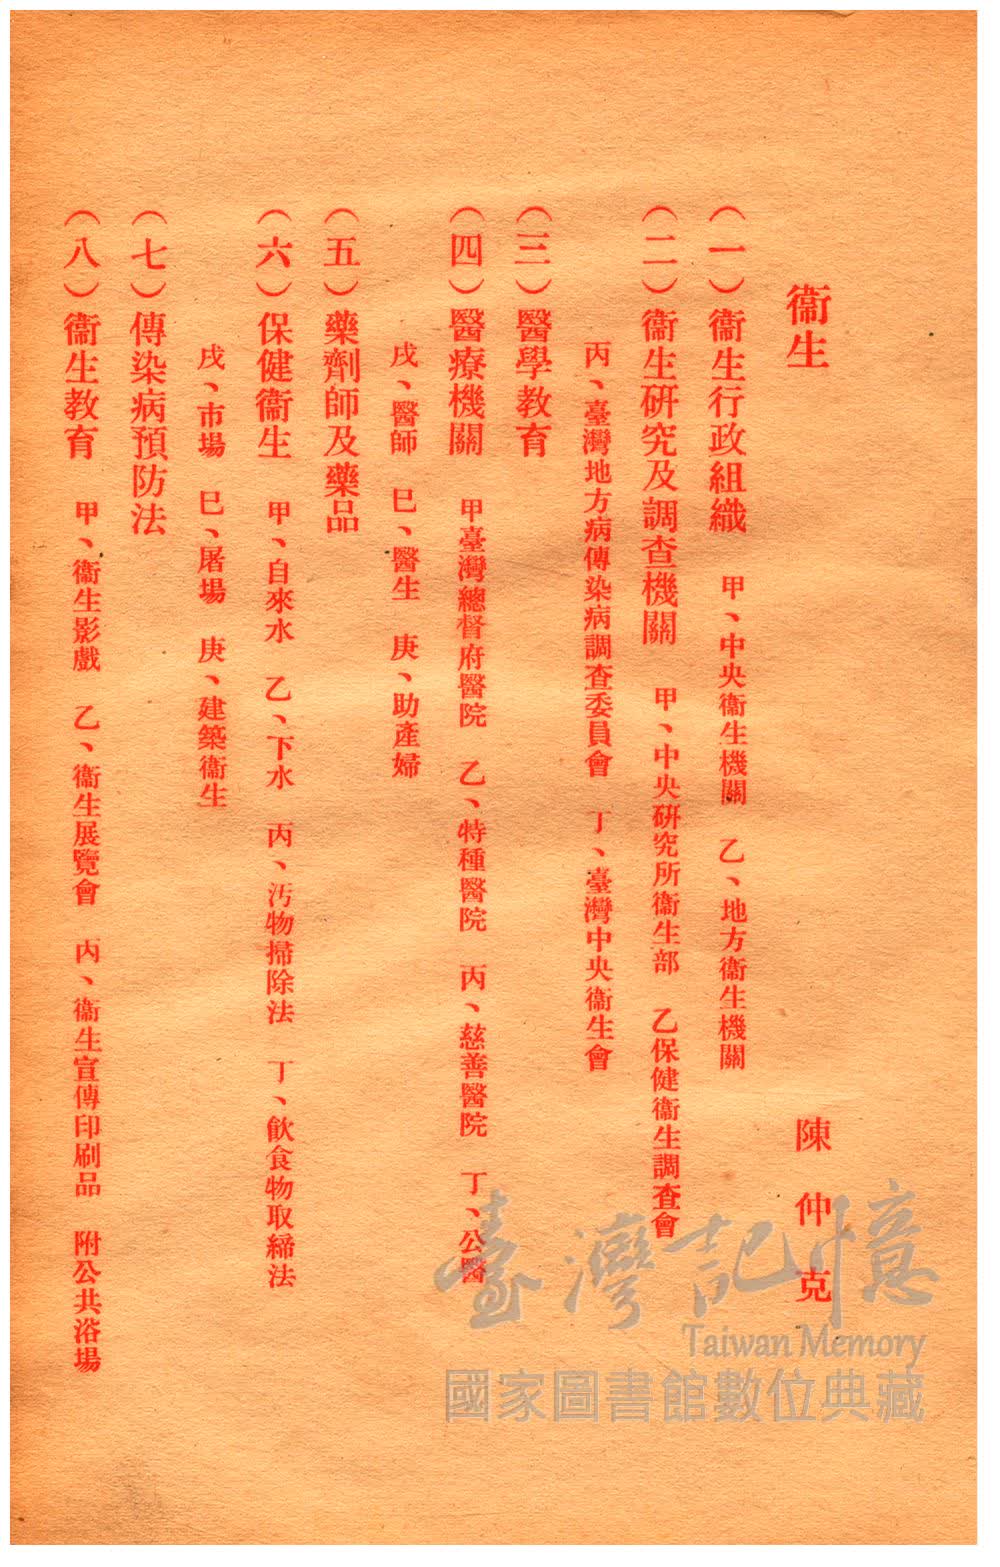 衞生　陳仲克
（一）衞生行政組織　甲、中央衞生機關　乙、地方衞生機關
（二）衞生研究及調查機關　甲、中央研究所衞生部　乙保健衞生調查會
丙、臺灣地方病傳染病調查委員會　丁、臺灣中央衞生會
（三）醫學教育
（四）醫療機關　甲臺灣總督府醫院　乙、特種醫院　丙、慈善醫院　丁、公醫
戌、醫師　巳、醫生　庚、助產婦
（五）藥劑師及藥品
（六）保健衞生　甲、自來水　乙、下水　丙、汚物掃除法　丁、飲食物取締法
戌、市場　巳、屠場　庚、建築衞生
（七）傳染病預防法
（八）衞生教育　甲、衞生影戲　乙、衞生展覽會　丙、衞生宣傳印刷品　附公共浴場
臺灣記憶
Taiwan Memory
國家圖書館數位典藏